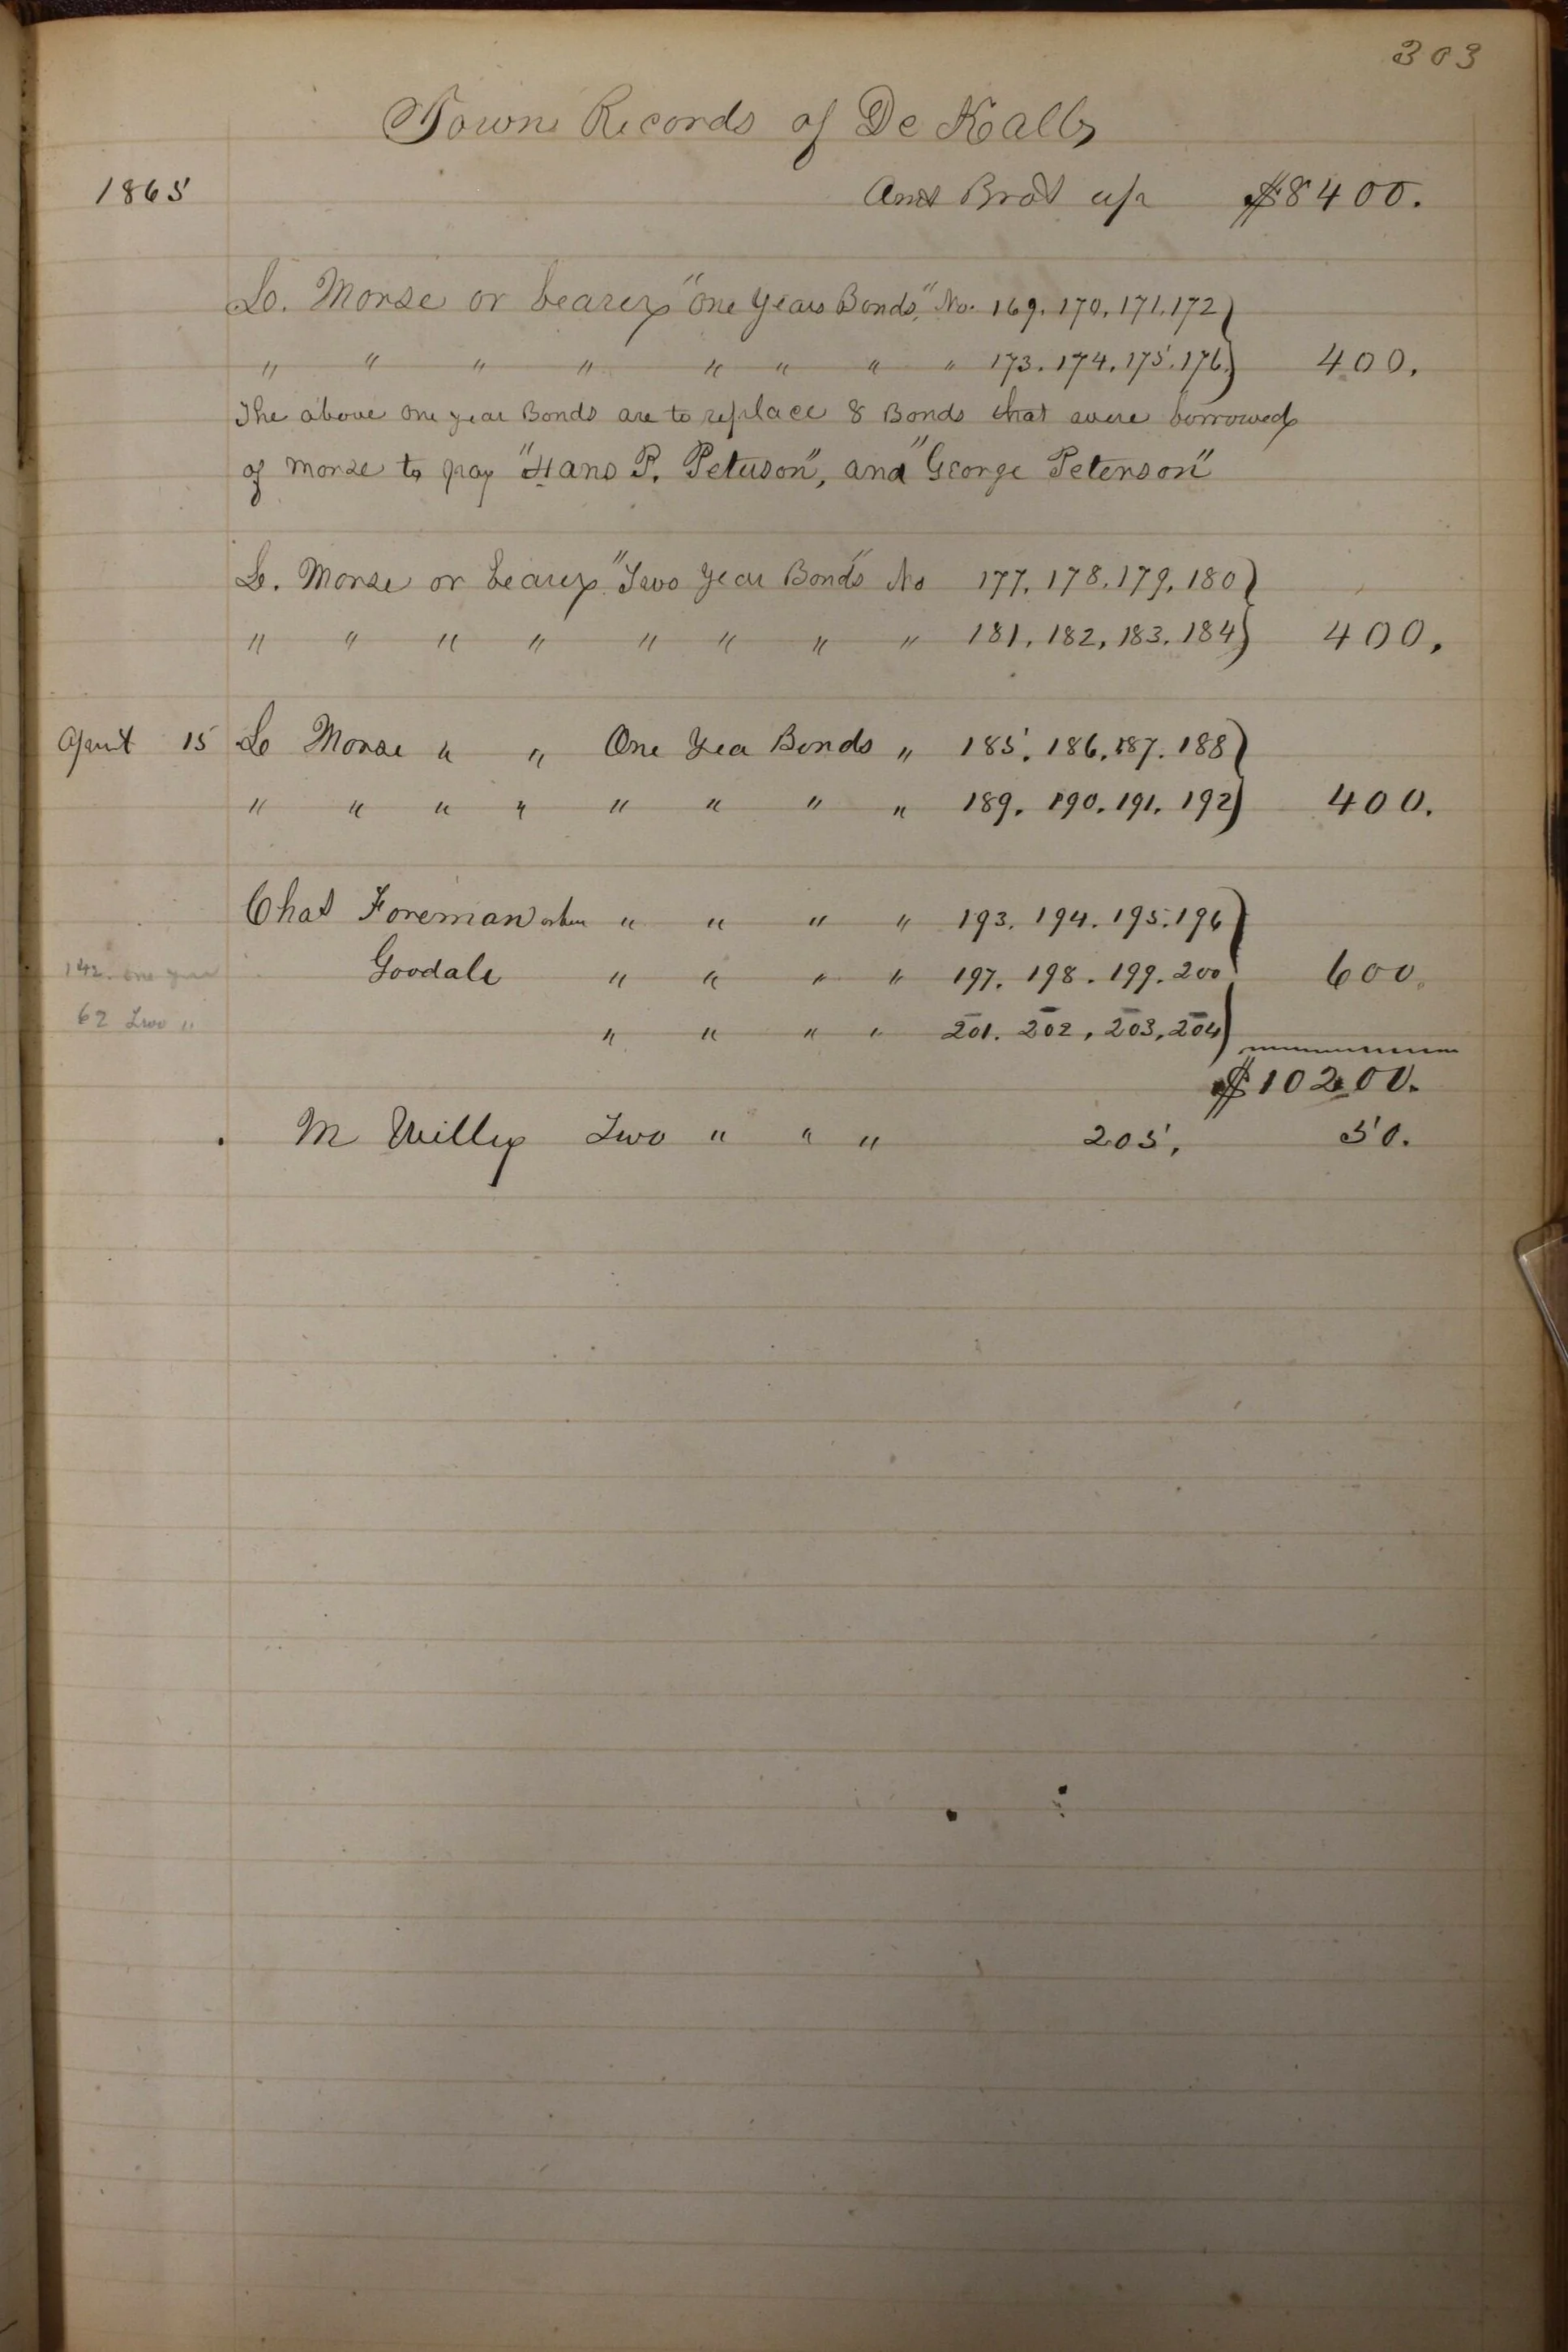 303
Town Records of De Kalb
1865 Amt Brot up $8400.
Lo. Morse or bearer "One Years Bonds," No. 169. 170. 171. 172
" " " " " " " " 173. 174. 175. 176. 400.
The above one year Bonds are to replace 8 Bonds that were borrowed
of Morse to pay "Hans P. Peterson", and "George Peterson"
Lo. Morse or bearer "Two Year Bonds" No 177. 178. 179. 180
" " " " " " " " 181. 182, 183. 184 400.
April 15 Lo Morse " " One Yea Bonds " 185. 186. 187. 188
" " " " " " " " 189. 190. 191. 192 400.
Chas Foreman " " " " 193. 194. 195. 196
142. one year Goodale " " " " 197. 198. 199. 200 600.
62 Two " " " " " 201. 202, 203, 204
$10200.
M Willey Two " " " 205. 50.